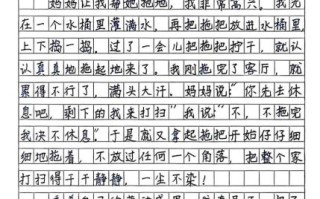 妈妈让我拖地，我非常高兴。我先
在一个水桶里灌满水，再把拖把放进水桶里
上下捣一捣。过了一会儿把拖把拧干，就认
认真真地拖起地来了。我刚拖完了客厅，就
累得不行了，满头大汗。妈妈说："你先去休
息吧，剩下的我来打扫"我说："不，不拖完
我决不休息"于是就又拿起拖把开始仔仔细
细地拖着，不放过任何一个角落，把整个家
打扫得干干静静，一尘不染！